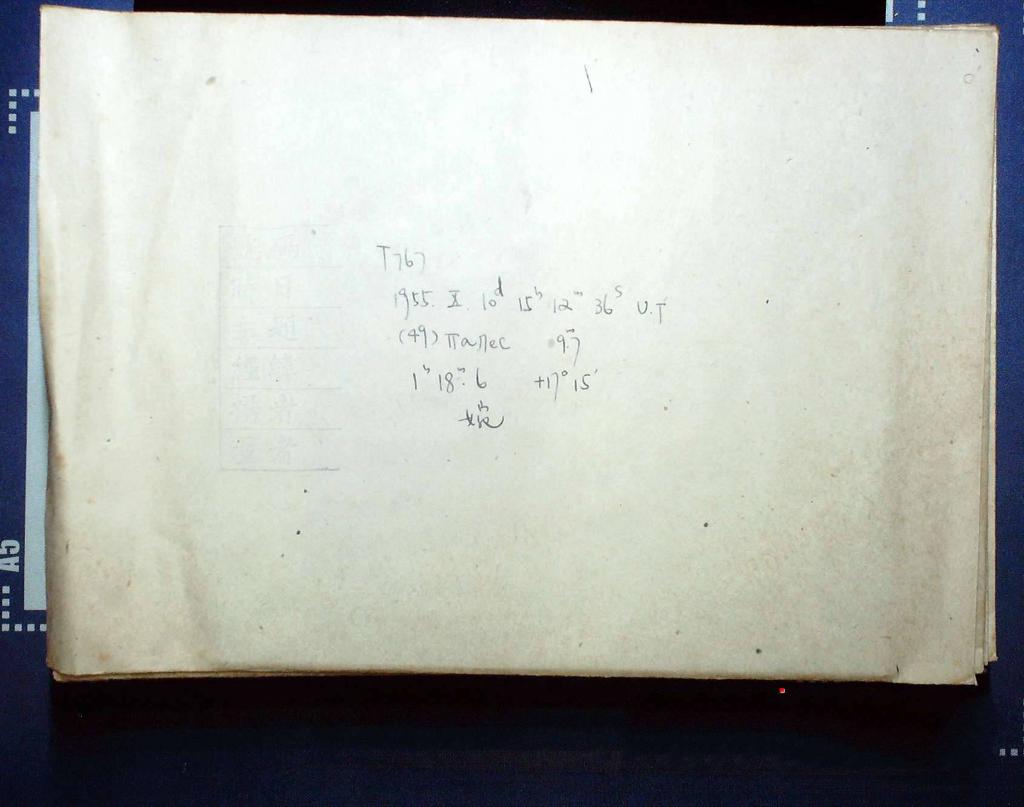 T767
1955. X. 10ᵈ 15ʰ 12ᵐ 36ˢ U.T
(49) Палес 9ᵐ.7
1ʰ 18ᵐ.6 +17° 15′
A5